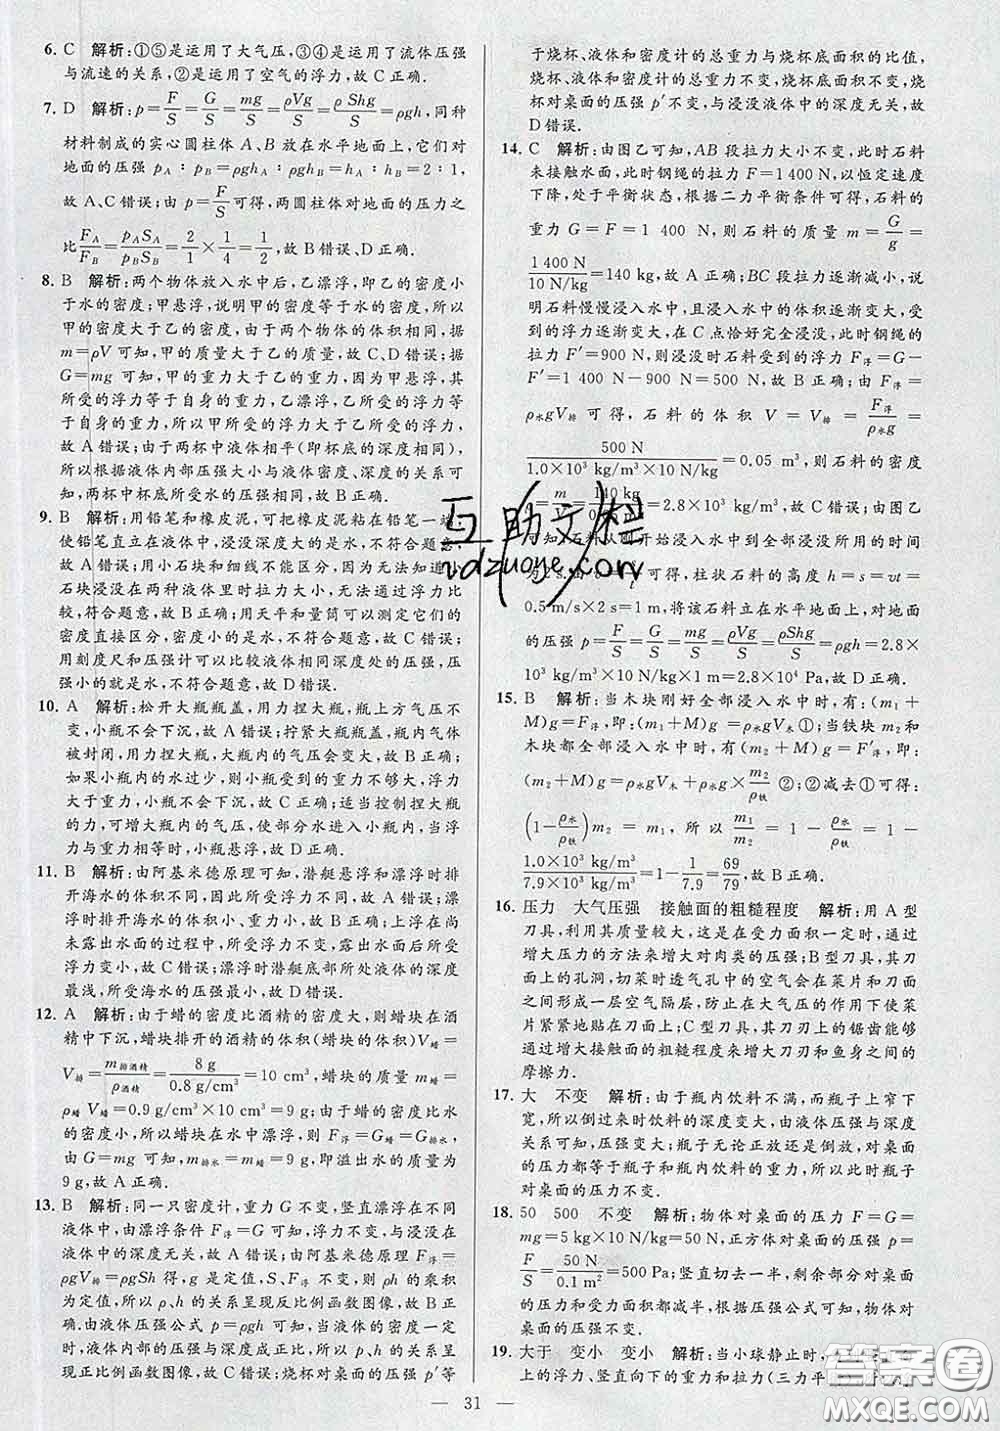 6. C 解析:①⑤是运用了大气压,③④是运用了流体压强
与流速的关系,②是运用了空气的浮力,故C正确.
7. D 解析:p=F/S=G/S=mg/S=ρVg/S=ρShg/S=ρgh,同种
材料制成的实心圆柱体 A、B 放在水平地面上,它们对
地面的压强 pA∶pB=ρghA∶ρghB=hA∶hB=2∶1,
故A、C错误;由 p=F/S可得,两圆柱体对地面的压力之
比FA/FB=pASA/pBSB=2/1×1/4=1/2,故B错误、D正确.
8. B 解析:两个物体放入水中后,乙漂浮,即乙的密度小
于水的密度;甲悬浮,说明甲的密度等于水的密度,所以
甲的密度大于乙的密度,由于两个物体的体积相同,据
m=ρV可知,甲的质量大于乙的质量,故C、D错误;据
G=mg 可知,甲的重力大于乙的重力,因为甲悬浮,其
所受的浮力等于自身的重力,乙漂浮,乙所受的浮力等
于自身的重力,所以甲所受的浮力大于乙所受的浮力,
故A错误;由于两杯中液体相平(即杯底的深度相同),
所以根据液体内部压强大小与液体密度、深度的关系可
知,两杯中杯底所受水的压强相同,故B正确.
9. B 解析:用铅笔和橡皮泥,可把橡皮泥粘在铅笔一端,
使铅笔直立在液体中,浸没深度大的是水,不符合题意,
故A错误;用小石块和细线不能区分,因为无法知道小
石块浸没在两种液体里时拉力大小,无法通过浮力比
较,符合题意,故B正确;用天平和量筒可以测定它们的
密度直接区分,密度小的是水,不符合题意,故C错误;
用刻度尺和压强计可以比较液体相同深度处的压强,压
强小的就是水,不符合题意,故D错误.
10. A 解析:松开大瓶瓶盖,用力捏大瓶,瓶上方气压不
变,小瓶不会下沉,故A错误;拧紧大瓶瓶盖,瓶内气体
被封闭,用力捏大瓶,大瓶内的气压会变大,故B正确;
如果小瓶内的水过少,则小瓶受到的重力不够大,浮力
大于重力,小瓶不会下沉,故C正确;适当控制捏大瓶
的力,可增大瓶内的气压,使部分水进入小瓶,当浮力
与重力相等时,小瓶悬浮,故D正确.
11. B 解析:由阿基米德原理可知,潜艇悬浮和漂浮时排
开海水的体积不同,因此所受浮力不同,故A错误;漂
浮时排开海水的体积小、重力小,故B正确;上浮在尚
未露出水面的过程中,所受浮力不变,露出水面后所受
浮力变小,故C错误;漂浮时潜艇底部所处液体的深度
最浅,所受海水的压强最小,故D错误.
12. A 解析:由于蜡的密度比酒精的密度大,则蜡块在酒
精中下沉,蜡块排开的酒精的体积(蜡块的体积)V蜡=
V排=m排酒精/ρ酒精=8 g/0.8 g/cm³=10 cm³,蜡块的质量 m蜡=
ρ蜡V蜡=0.9 g/cm³×10 cm³=9 g;由于蜡的密度比水
的密度小,所以蜡块在水中漂浮,则F浮=G蜡=G排水,
由G=mg可知,m排水=m蜡=9 g,即溢出水的质量为
9 g,故A正确.
13. B 解析:同一只密度计,重力G不变,竖直漂浮在不同
液体中,由漂浮条件 F浮=G 可知,浮力不变,与浸没在
液体中的深度无关,故A错误;由阿基米德原理 F浮=
ρgV排=ρgSh 得,g是定值,S、F浮不变,则ρh 的乘积
为定值,所以ρ、h 的关系呈现反比例函数图像,故B正
确;由液体压强公式 p=ρgh 可知,当液体的密度一定
时,液体内部的压强与深度成正比,所以p、h的关系呈现
正比例函数图像,故C错误;烧杯对桌面的压强p′等
于烧杯、液体和密度计的总重力与烧杯底面积的比值,
烧杯、液体和密度计的总重力不变,烧杯底面积不变,烧
杯对桌面的压强p′不变,与浸没液体中的深度无关,故
D错误.
14. C 解析:由图乙可知,AB段拉力大小不变,此时石料
未接触水面,此时钢绳的拉力F=1 400 N,以恒定速度
下降,处于平衡状态,根据二力平衡条件可得,石料的
重力 G=F=1 400 N,则石料的质量 m=G/g=
1 400 N/10 N/kg=140 kg,故A正确;BC段拉力逐渐减小,说
明石料慢慢浸入水中,且浸入水中的体积逐渐变大,受
到的浮力逐渐变大,在C点恰好完全浸没,此时钢绳的
拉力F′=900 N,则浸没时石料受到的浮力F浮=G-
F′=1 400 N-900 N=500 N,故B正确;由F浮=
ρ水gV排 可得,石料的体积 V=V排=F浮/ρ水g=
500 N/1.0×10³ kg/m³×10 N/kg=0.05 m³,则石料的密度
ρ=m/V=140 kg/0.05 m³=2.8×10³ kg/m³,故C错误;由图乙
可知,石料从刚开始浸入水中到全部浸没所用的时间
为2 s,由 可得,柱状石料的高度 h=s=vt=
0.5 m/s×2 s=1 m,将该石料立在水平地面上,对地面
的压强 p=F/S=G/S=mg/S=ρVg/S=ρShg/S=ρgh=2.8×
10³ kg/m³×10 N/kg×1 m=2.8×10⁴ Pa,故D正确.
15. B 解析:当木块刚好全部浸入水中时,有:(m₁+
M)g=F浮,即:(m₁+M)g=ρ水gV木①;当铁块m₂和
木块都全部浸入水中时,有(m₂+M)g=F′浮,即:
(m₂+M)g=ρ水gV木+ρ水g×m₂/ρ铁 ②;②减去①可得:
(1-ρ水/ρ铁)m₂=m₁,所以m₁/m₂=1-ρ水/ρ铁=1-
1.0×10³ kg/m³/7.9×10³ kg/m³=1-1/7.9=69/79.
16. 压力 大气压强 接触面的粗糙程度 解析:用A型
刀具,利用其质量较大,这是在受力面积一定时,通过
增大压力的方法来增大对肉类的压强;B型刀具,其刀
面上的孔洞,切菜时透气孔中的空气会在菜片和刀具
之间形成一层空气隔层,防止在大气压的作用下使菜
片紧紧地贴在刀具上;C型刀具,其刀刃上的锯齿能够
通过增大接触面的粗糙程度来增大刀刃和鱼身之间的
摩擦力.
17. 大 不变 解析:由于瓶内饮料不满,而瓶子上窄下
宽,所以倒过来时饮料的深度变大,由液体压强与深度
关系可知,压强变大;瓶子无论正放还是倒放,对桌面
的压力都等于瓶子和瓶内饮料的重力,所以瓶子
对桌面的压力不变.
18. 50 500 不变 解析:物体对桌面的压力F=G=
mg=5 kg×10 N/kg=50 N,正方体对桌面的压强 p=
F/S=50 N/0.1 m²=500 Pa;竖直切去一半,剩余部分对桌面
的压力和受力面积都减半,根据压强公式可知,物体对
桌面的压强不变.
19. 大于 变小 变小 解析:当小球静止时,受
的浮力、竖直向下的重力和拉力(三力平
31
互助文档
hdzuoye.com
答案圈
MXQE.COM